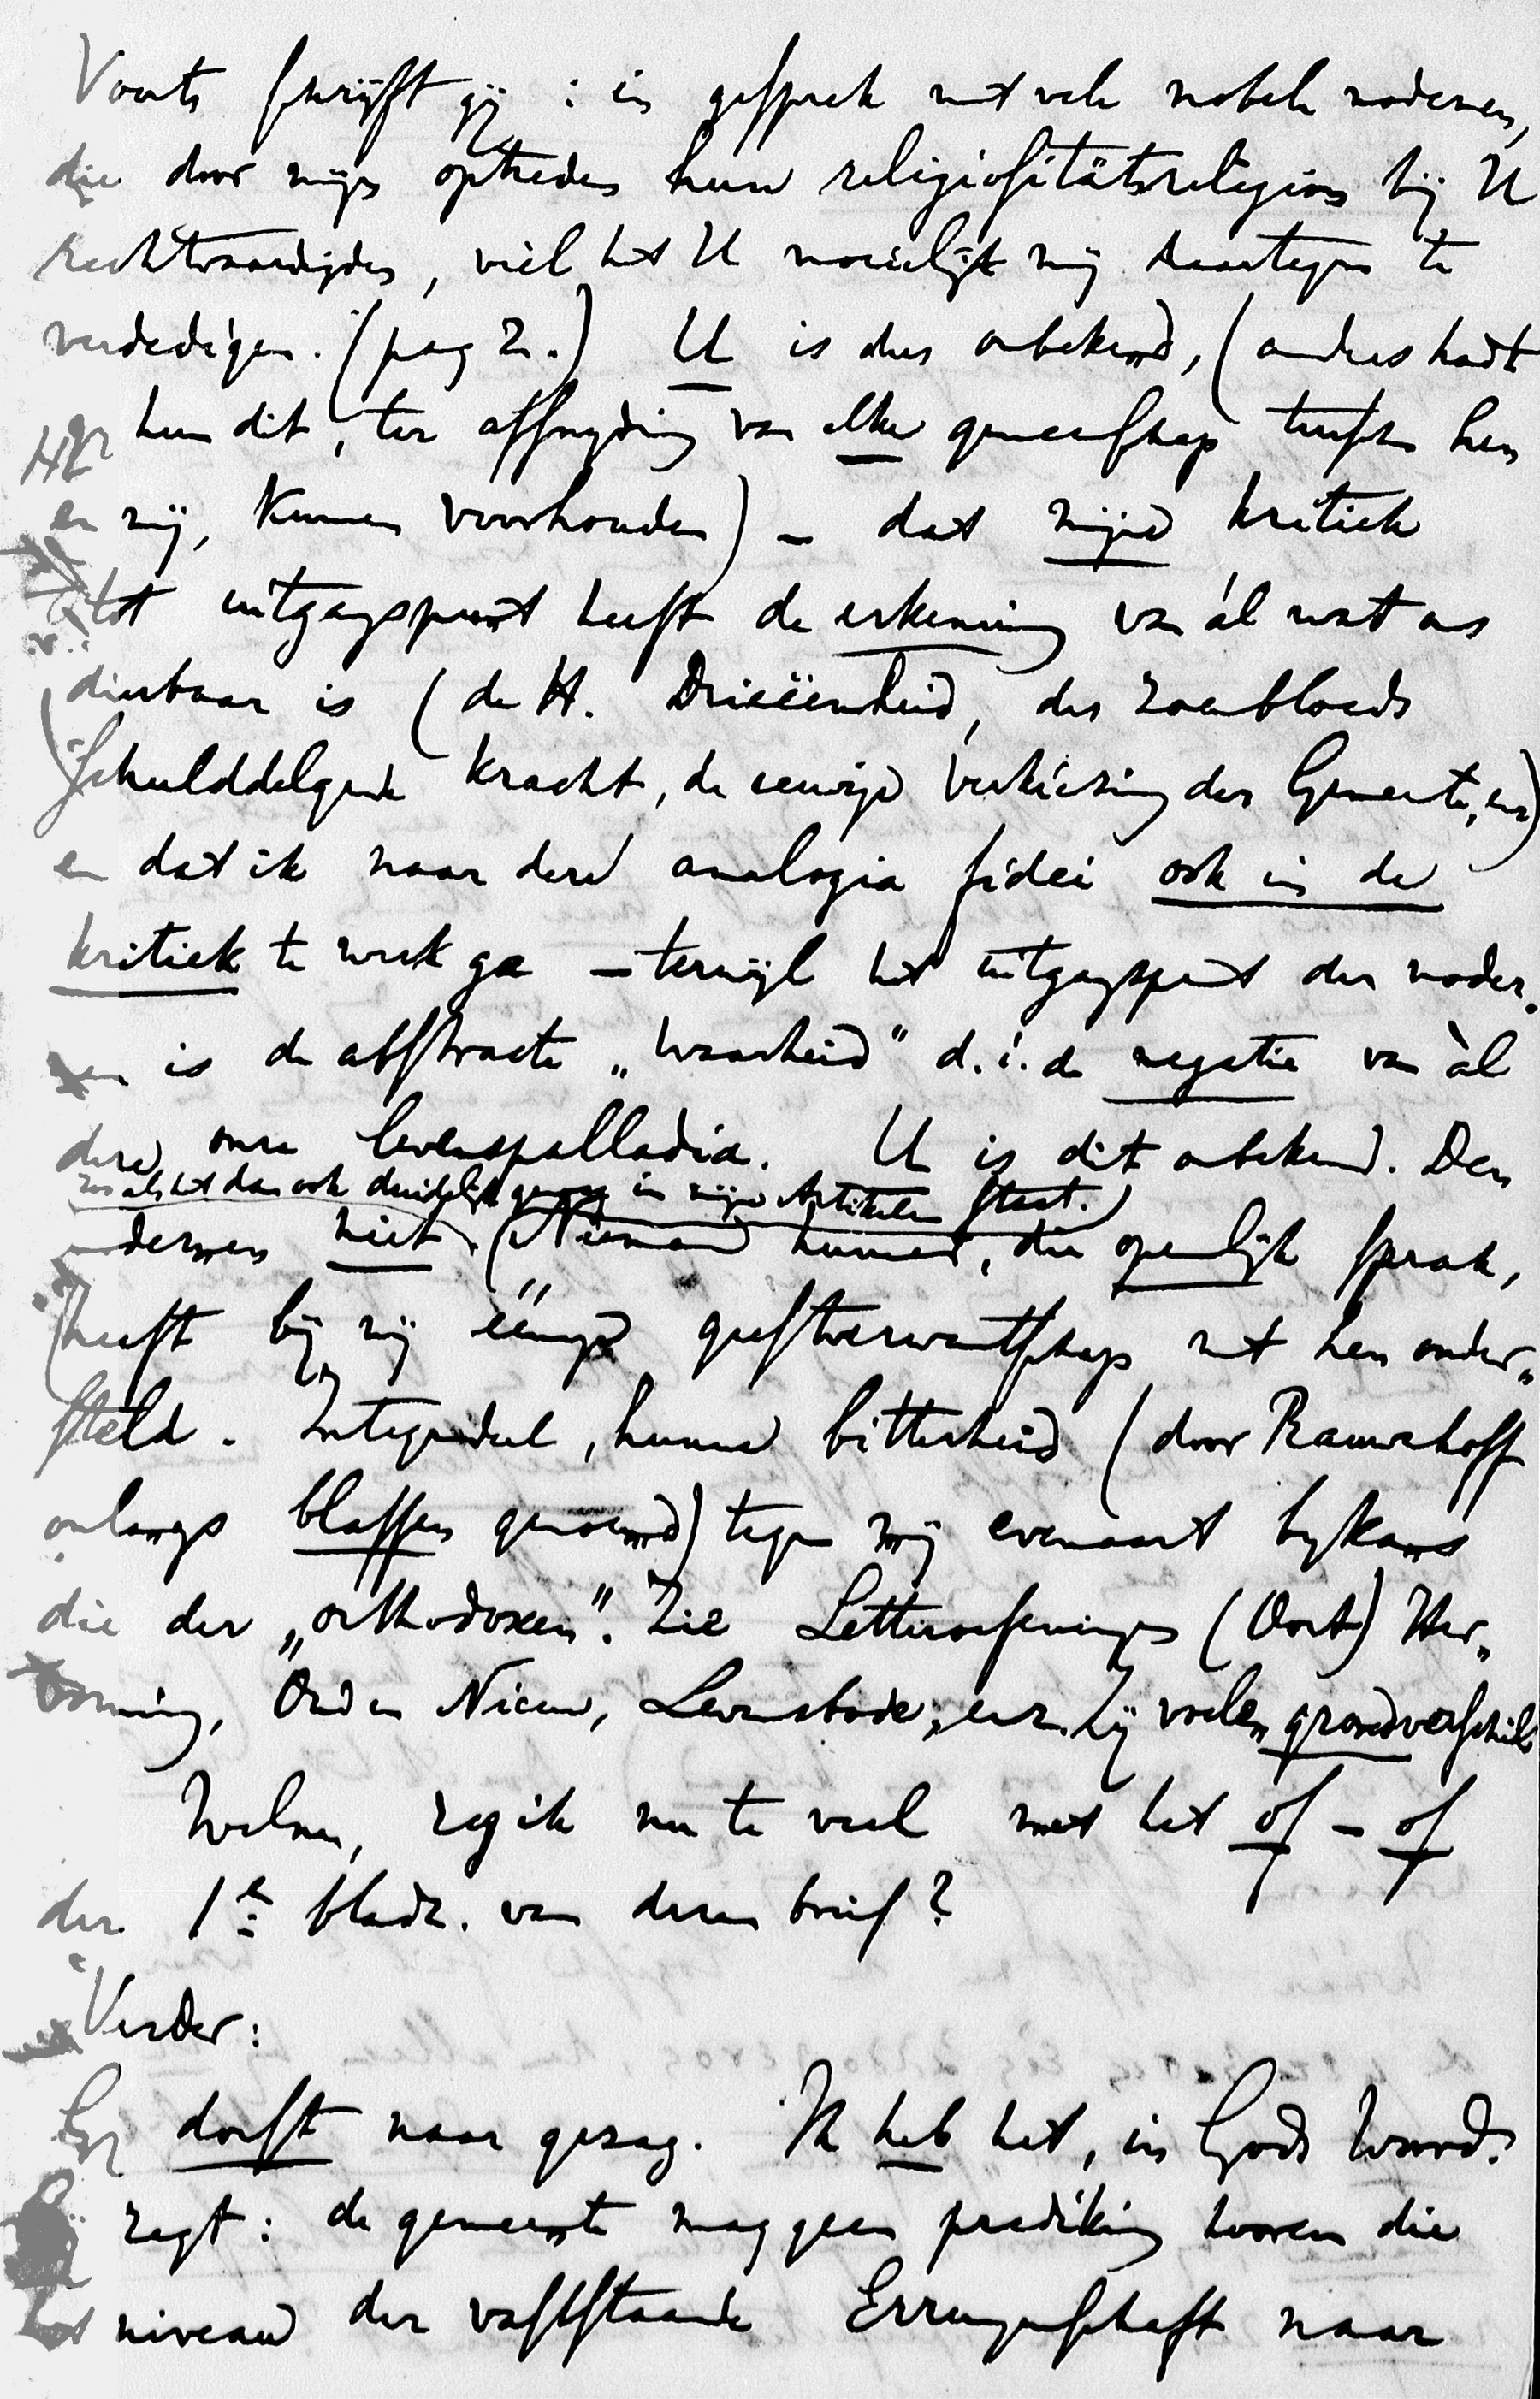 Voorts schrijft gij : in gesprek met vele nobele modernen,
die door mijn optreden hun religiositätsreligion bij U
rechtvaardigden, viel het U moeielijk mij daartegen te
verdedigen. (pag 2.) U is dus onbekend, (anders hadt
gij hun dit, ter affsnyding van elke gemeenschap tusschen hen
en mij, kunnen voorhouden) – dat mijne kritiek
tot uitgangspunt heeft de erkenning van ál wat ons
dierbaar is (de H. Drieëenheid, des zoenbloeds
schulddelgende kracht, de eeuwige verkiezing der Gemeente, enz)
en dat ik naar deze analogia fidei ook in de
kritiek te werk ga – terwijl het uitgangspunt der moder„
nen is de abstracte „waarheid” d. i. de negatie van àl
deze onze levenspalladia. U is dit onbekend. Den
zoo als het dan ook duidelijk genoeg in mijne Artikelen staat.)
modernen niet. (Niemand hunner, die openlijk sprak,
heeft bij mij éénige geestverwantschap met hen onder„
steld. Integendeel, hunne bitterheid (door Rauwenhoff
onlangs blaffen genoemd) tegen mij evenaart bykans
die der „orthodoxen”. Zie Letteroefeningen (Oort) Her„
vorming, Oud en Nieuw, Levensbode, enz. Zij voelen grondverschil
Welnu, zeg ik nu te veel met het of – of
der 1e bladz. van dezen brief?
Verder:
Gij dorst naar gezag. Ik heb het, in Gods Woord.
zegt : de gemeente mag geen prediking hooren die
het niveau der vaststaande Errungenschaft naar